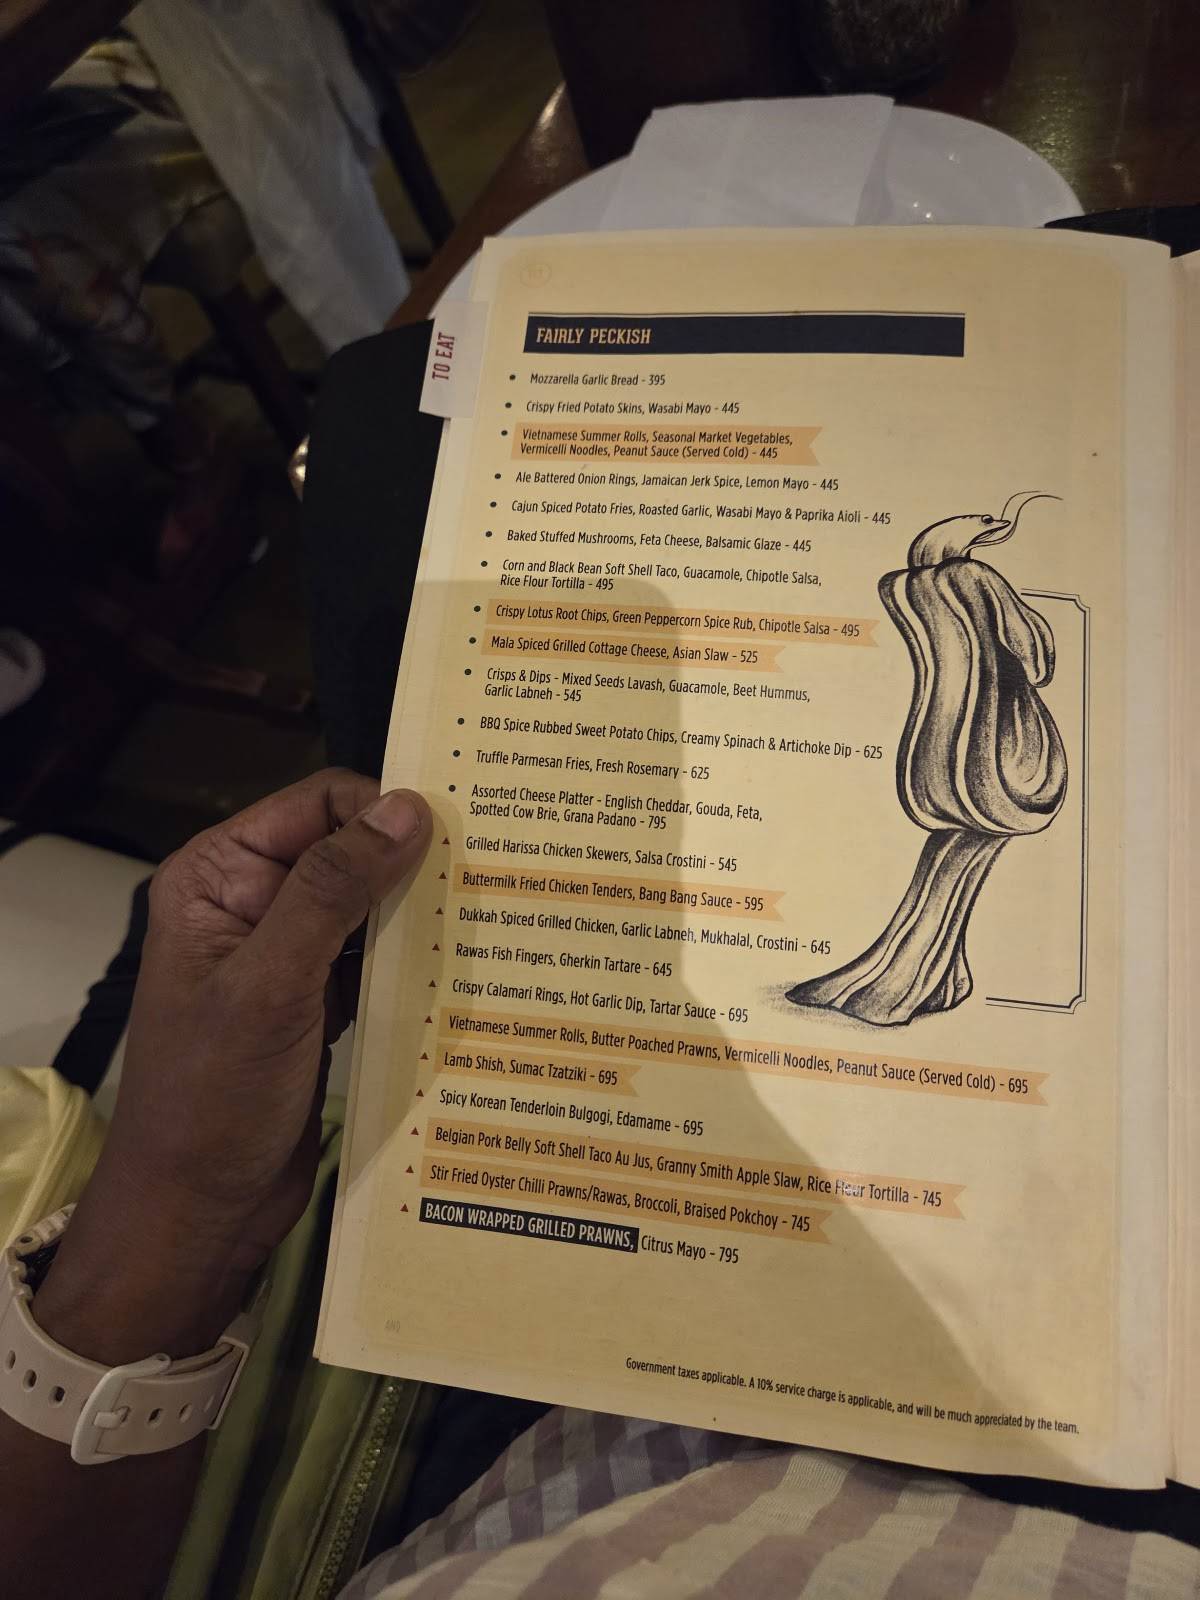 TO EAT
FAIRLY PECKISH
• Mozzarella Garlic Bread - 395
• Crispy Fried Potato Skins, Wasabi Mayo - 445
• Vietnamese Summer Rolls, Seasonal Market Vegetables,
Vermicelli Noodles, Peanut Sauce (Served Cold) - 445
• Ale Battered Onion Rings, Jamaican Jerk Spice, Lemon Mayo - 445
• Cajun Spiced Potato Fries, Roasted Garlic, Wasabi Mayo & Paprika Aioli - 445
• Baked Stuffed Mushrooms, Feta Cheese, Balsamic Glaze - 445
• Corn and Black Bean Soft Shell Taco, Guacamole, Chipotle Salsa,
Rice Flour Tortilla - 495
• Crispy Lotus Root Chips, Green Peppercorn Spice Rub, Chipotle Salsa - 495
• Mala Spiced Grilled Cottage Cheese, Asian Slaw - 525
• Crisps & Dips - Mixed Seeds Lavash, Guacamole, Beet Hummus,
Garlic Labneh - 545
• BBQ Spice Rubbed Sweet Potato Chips, Creamy Spinach & Artichoke Dip - 625
• Truffle Parmesan Fries, Fresh Rosemary - 625
• Assorted Cheese Platter - English Cheddar, Gouda, Feta,
Spotted Cow Brie, Grana Padano - 795
▲ Grilled Harissa Chicken Skewers, Salsa Crostini - 545
▲ Buttermilk Fried Chicken Tenders, Bang Bang Sauce - 595
▲ Dukkah Spiced Grilled Chicken, Garlic Labneh, Mukhalal, Crostini - 645
▲ Rawas Fish Fingers, Gherkin Tartare - 645
▲ Crispy Calamari Rings, Hot Garlic Dip, Tartar Sauce - 695
▲ Vietnamese Summer Rolls, Butter Poached Prawns, Vermicelli Noodles, Peanut Sauce (Served Cold) - 695
▲ Lamb Shish, Sumac Tzatziki - 695
▲ Spicy Korean Tenderloin Bulgogi, Edamame - 695
▲ Belgian Pork Belly Soft Shell Taco Au Jus, Granny Smith Apple Slaw, Rice Flour Tortilla - 745
▲ Stir Fried Oyster Chilli Prawns/Rawas, Broccoli, Braised Pokchoy - 745
▲ BACON WRAPPED GRILLED PRAWNS, Citrus Mayo - 795
Government taxes applicable. A 10% service charge is applicable, and will be much appreciated by the team.